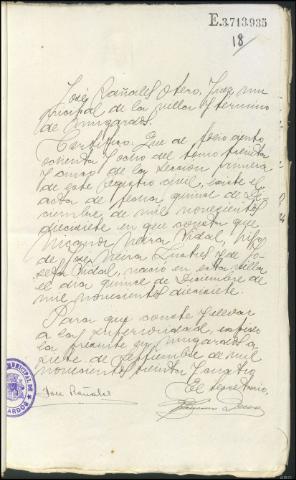 E.3.713.935
18
José Rañales Otero, Juez mu-
nicipal de la villa y termino
de Mugardos.
Certifico: Que al folio ciento
y ocho del tomo treinta
y de la Sección primera
de este Registro civil, existe el
acta de fecha quince de Di-
ciembre de mil novecientos
diecisiete en que consta que
Vidal, hijo
de José y de Jo-
sefa Vidal, nació en esta villa
el dia quince de Diciembre de
mil novecientos diecisiete.
Para que conste y llevar
a la Superioridad, expido
la presente en Mugardos a
siete de Septiembre de mil
novecientos treinta y cuatro
El Secretario,
José Rañales